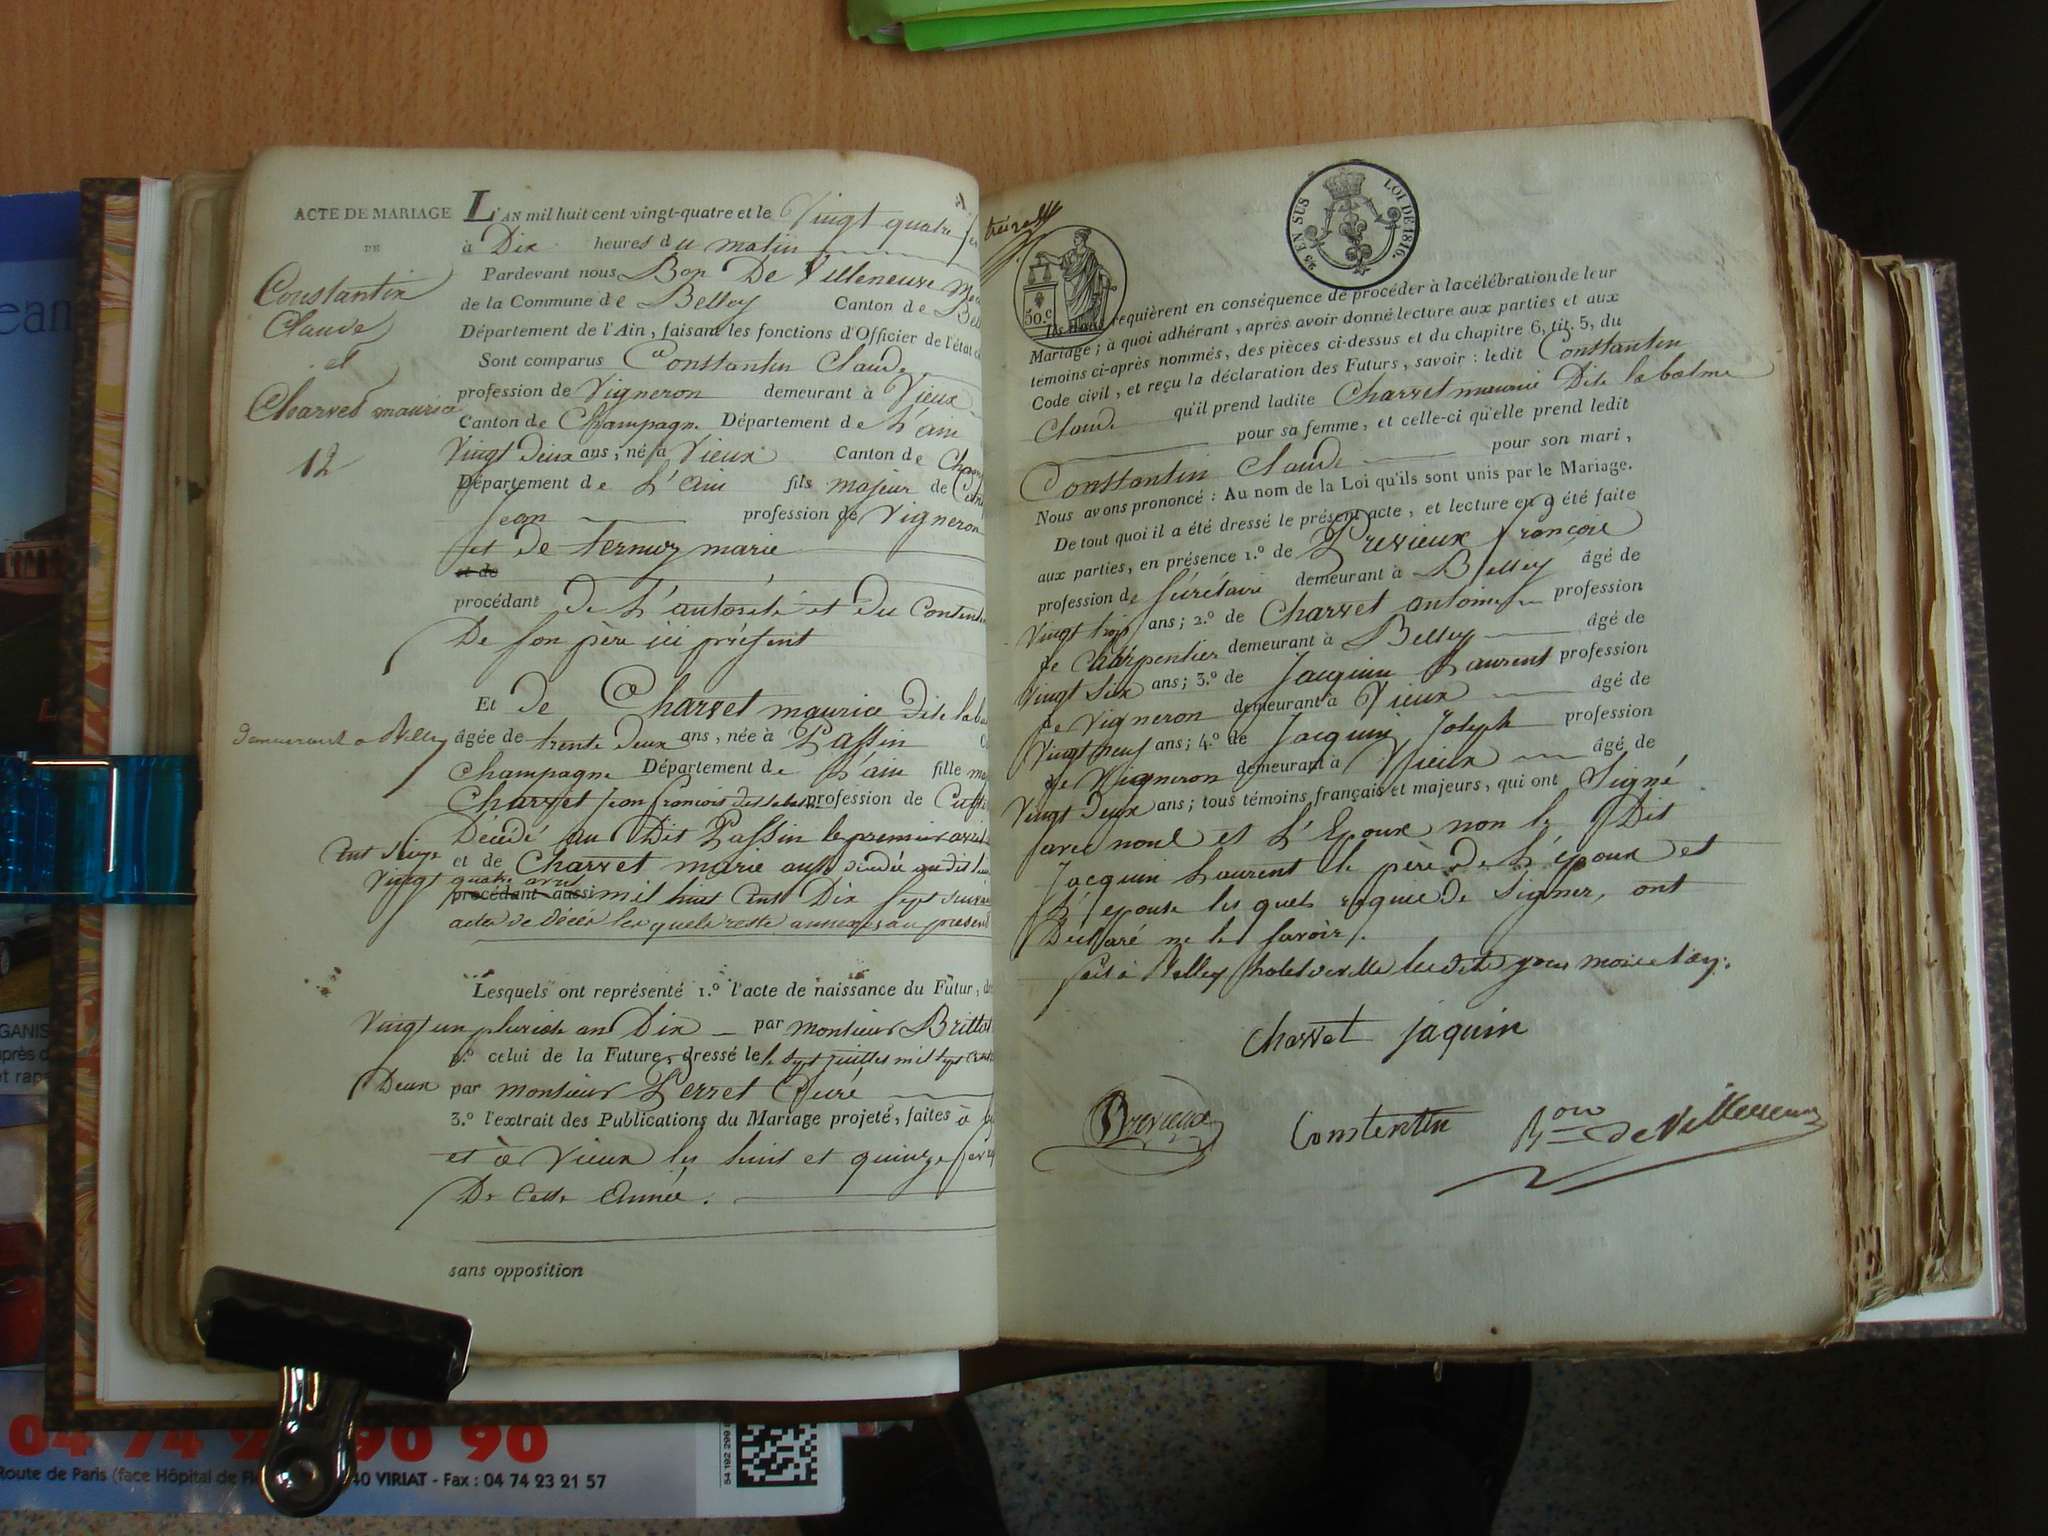 ACTE DE MARIAGE
DE
Constantin
Claude
et
Charvet maurice
12
L'AN mil huit cent vingt-quatre et le Vingt quatre
à Dix heures du matin
Pardevant nous Bon De Villeneuve
de la Commune de Belley Canton de
Département de l'Ain, faisant les fonctions d'Officier de l'état
Sont comparus Constantin Claude
profession de Vigneron demeurant à Vieux
Canton de Champagne Département de L'ain
Vingt deux ans, né à Vieux Canton de
Département de L'Ain fils majeur de
Jean profession de Vigneron
et de ternuz marie
et de
procédant de L'autorité et du
De son père ici présent
Et de Charvet maurice dite
demeurant a Belley
âgée de trente deux ans, née à Passin
Champagne Département de L'ain fille
Charvet Jean françois profession de
Décédé au Dit Passin le premier
et de Charvet marie
Vingt quatre avril
procédant aussi mil huit cent Dix sept
actes de décés les quels reste annexés au présent
Lesquels ont représenté 1.° l'acte de naissance du Futur,
Vingt un pluviose an Dix par monsieur
2.° celui de la Future, dressé le le sept juillet mil sept
Deux par monsieur Perret Curé
3.° l'extrait des Publications du Mariage projeté, faites à
et à Vieux les huit et quinze
De cette Année.
sans opposition
50. c
25 EN SUS LOI DE 1816.
Ils nous requièrent en conséquence de procéder à la célébration de leur
Mariage; à quoi adhérant, après avoir donné lecture aux parties et aux
témoins ci-après nommés, des pièces ci-dessus et du chapitre 6, tit. 5, du
Code civil, et reçu la déclaration des Futurs, savoir: ledit Constantin
Claude qu'il prend ladite Charvet maurice Dite la balme
pour sa femme, et celle-ci qu'elle prend ledit
Constantin Claude pour son mari,
Nous avons prononcé: Au nom de la Loi qu'ils sont unis par le Mariage.
De tout quoi il a été dressé le présent acte, et lecture en a été faite
aux parties, en présence 1.° de Previeux françois
profession de sécrétaire demeurant à Belley âgé de
Vingt trois ans; 2.° de Charvet antoine profession
de Charpentier demeurant à Belley âgé de
Vingt six ans; 3.° de Jacquin Laurent profession
de Vigneron demeurant à Vieux âgé de
Vingt neuf ans; 4.° de Jacquin Joseph profession
de Vigneron demeurant à Vieux âgé de
Vingt deux ans; tous témoins français et majeurs, qui ont Signé
avec nous et L'Epoux non le Dit
Jacquin Laurent le père de L'époux et
L'épouse les quels requis de Signer, ont
Déclaré ne le savoir.
fait à Belley
Charvet jaquin
Previeux Constentin Bon de Villeneuve
04 74 2 90 90
Route de Paris (face Hôpital de 40 VIRIAT - Fax : 04 74 23 21 57